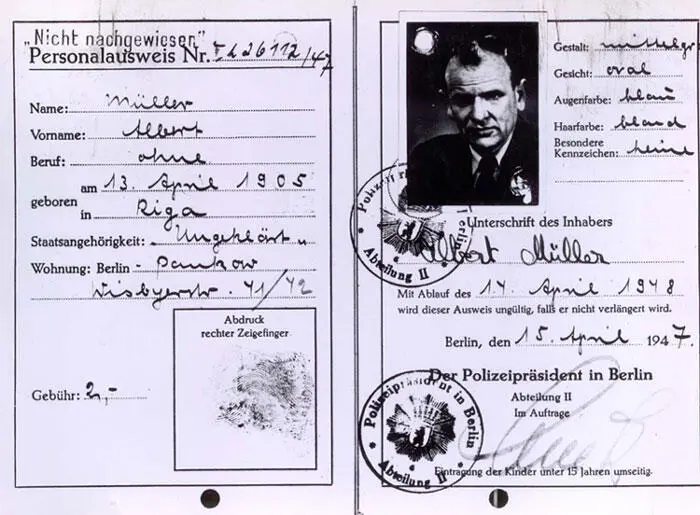 „Nicht nachgewiesen"
Personalausweis Nr. 26112/47
Name: Müller
Vorname: Albert
Beruf: ohne
geboren am 13. April 1905
in Riga
Staatsangehörigkeit: „Ungeklärt"
Wohnung: Berlin - Pankow
Wisbyerstr. 41/42
Abdruck
rechter Zeigefinger
Gebühr: 2,-
Gestalt: mittelgr
Gesicht: oval
Augenfarbe: blau
Haarfarbe: blond
Besondere
Kennzeichen: keine
Unterschrift des Inhabers
Albert Müller
Mit Ablauf des 14. April 1948
wird dieser Ausweis ungültig, falls er nicht verlängert wird.
Berlin, den 15. April 1947.
Der Polizeipräsident in Berlin
Abteilung II
Im Auftrage
Eintragung der Kinder unter 15 Jahren umseitig.
Polizeipräsident in Berlin
Abteilung II
Abteilung II